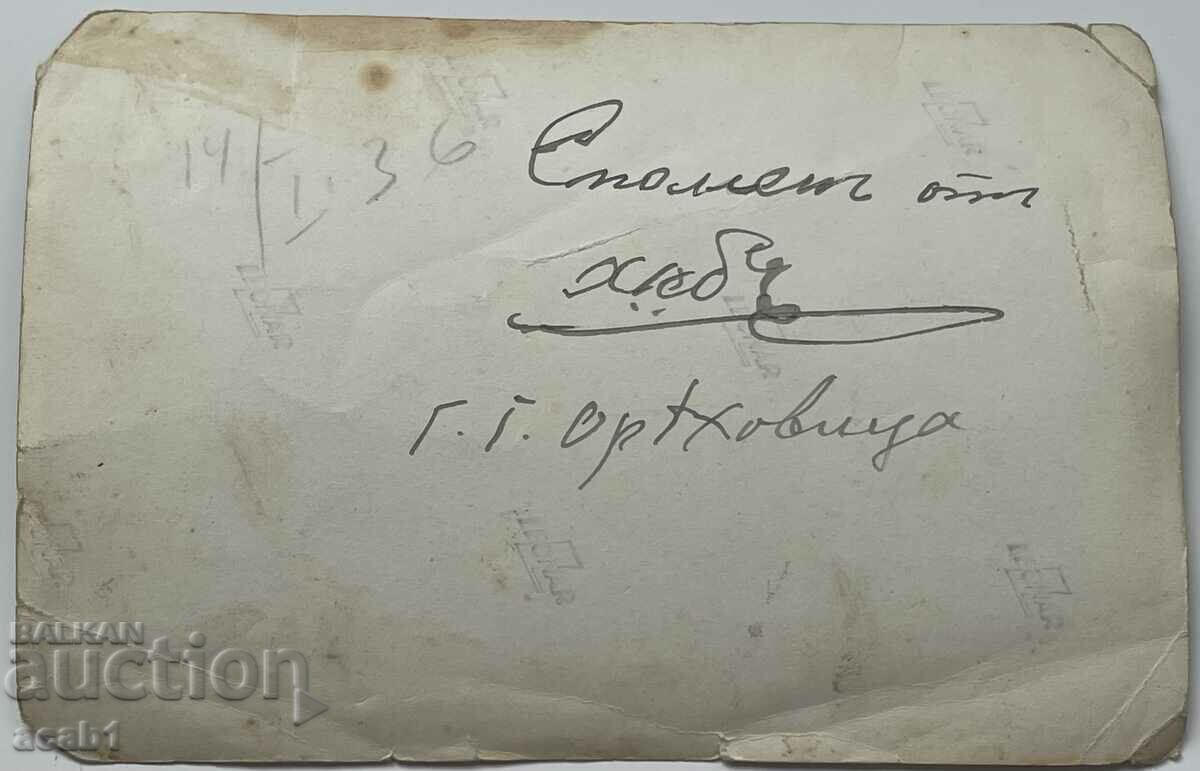 14/I.36
Споменъ отъ
Г. Г. Орѣховица
BALKAN
auction
acab1